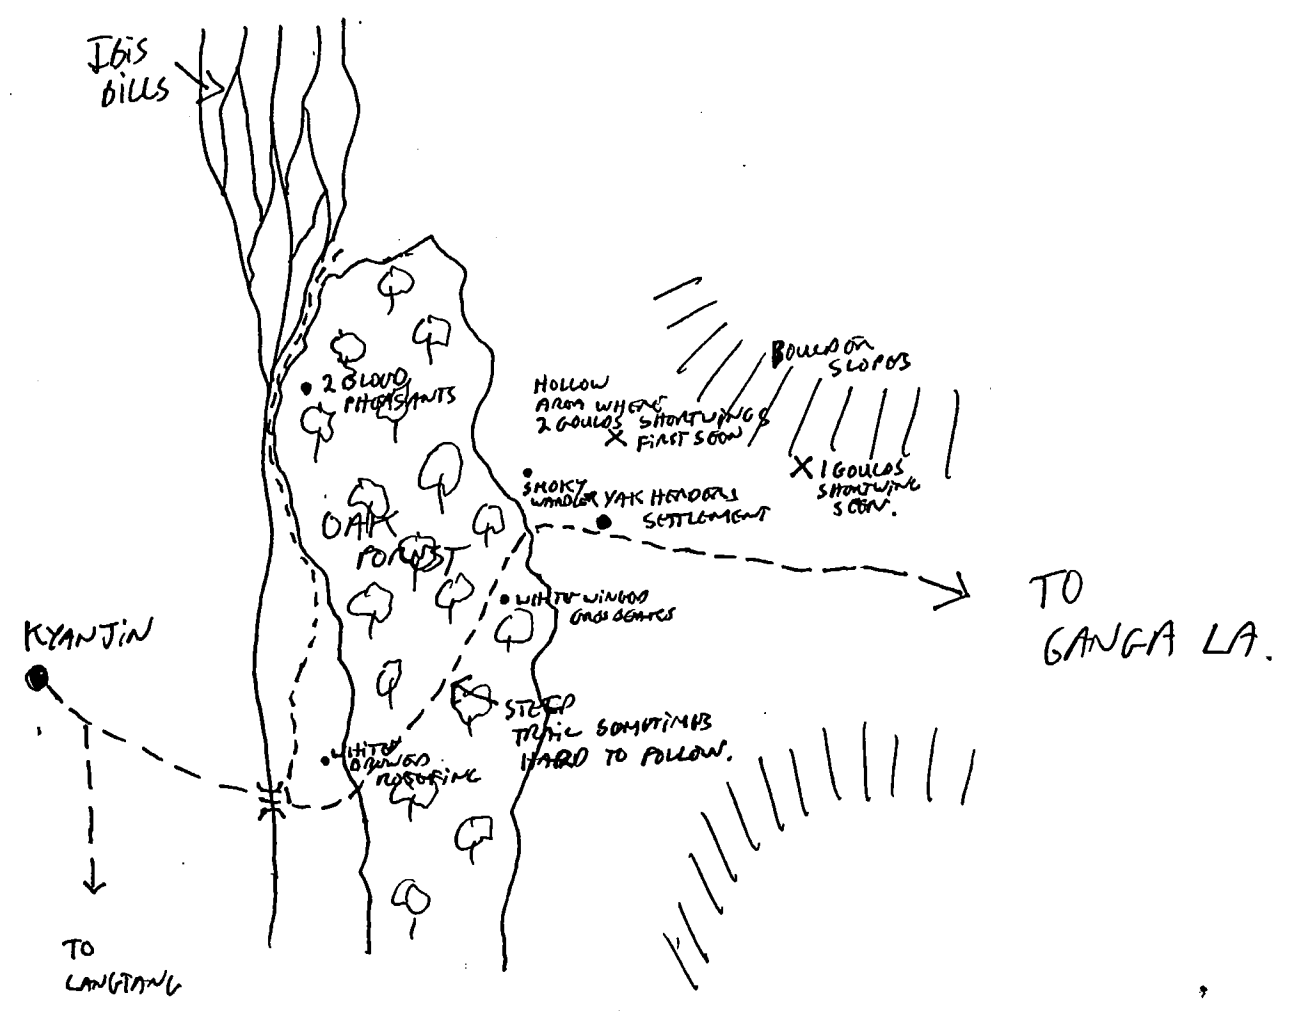 IBIS
BILLS
BOULDER
SLOPES
2 BLOOD
PHEASANTS
HOLLOW
AREA WHERE
2 GOULDS SHORTWINGS
FIRST SEEN
1 GOULDS
SHORTWING
SEEN.
SMOKY
WARBLER
YAK HERDERS
SETTLEMENT
OAK
FOREST
WHITE WINGED
GROSBEAKS
TO
GANGA LA.
KYANJIN
STEEP
TRAIL SOMETIMES
HARD TO FOLLOW.
WHITE
BROWED
ROSEFINC
TO
LANGTANG